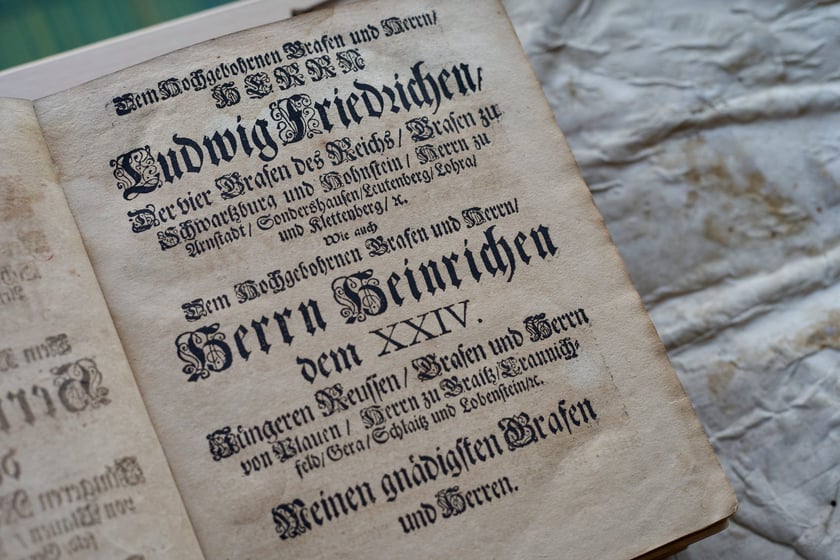 Dem Hochgebohrnen Grafen und Herrn/
HERRN
Ludwig Friedrichen,
Der vier Grafen des Reichs/ Grafen zu
Schwartzburg und Hohnstein/ Herrn zu
Arnstadt/ Sondershausen/Leutenberg/Lohra/
und Klettenberg/ ꝛc.
Wie auch
Dem Hochgebohrnen Grafen und Herrn/
Herrn Heinrichen
dem XXIV.
Jüngeren Reussen/ Grafen und Herrn
von Plauen/ Herrn zu Graitz/Crannich-
feld/Gera/Schlaitz und Lobenstein/ꝛc.
Meinen gnädigsten Grafen
und Herren.